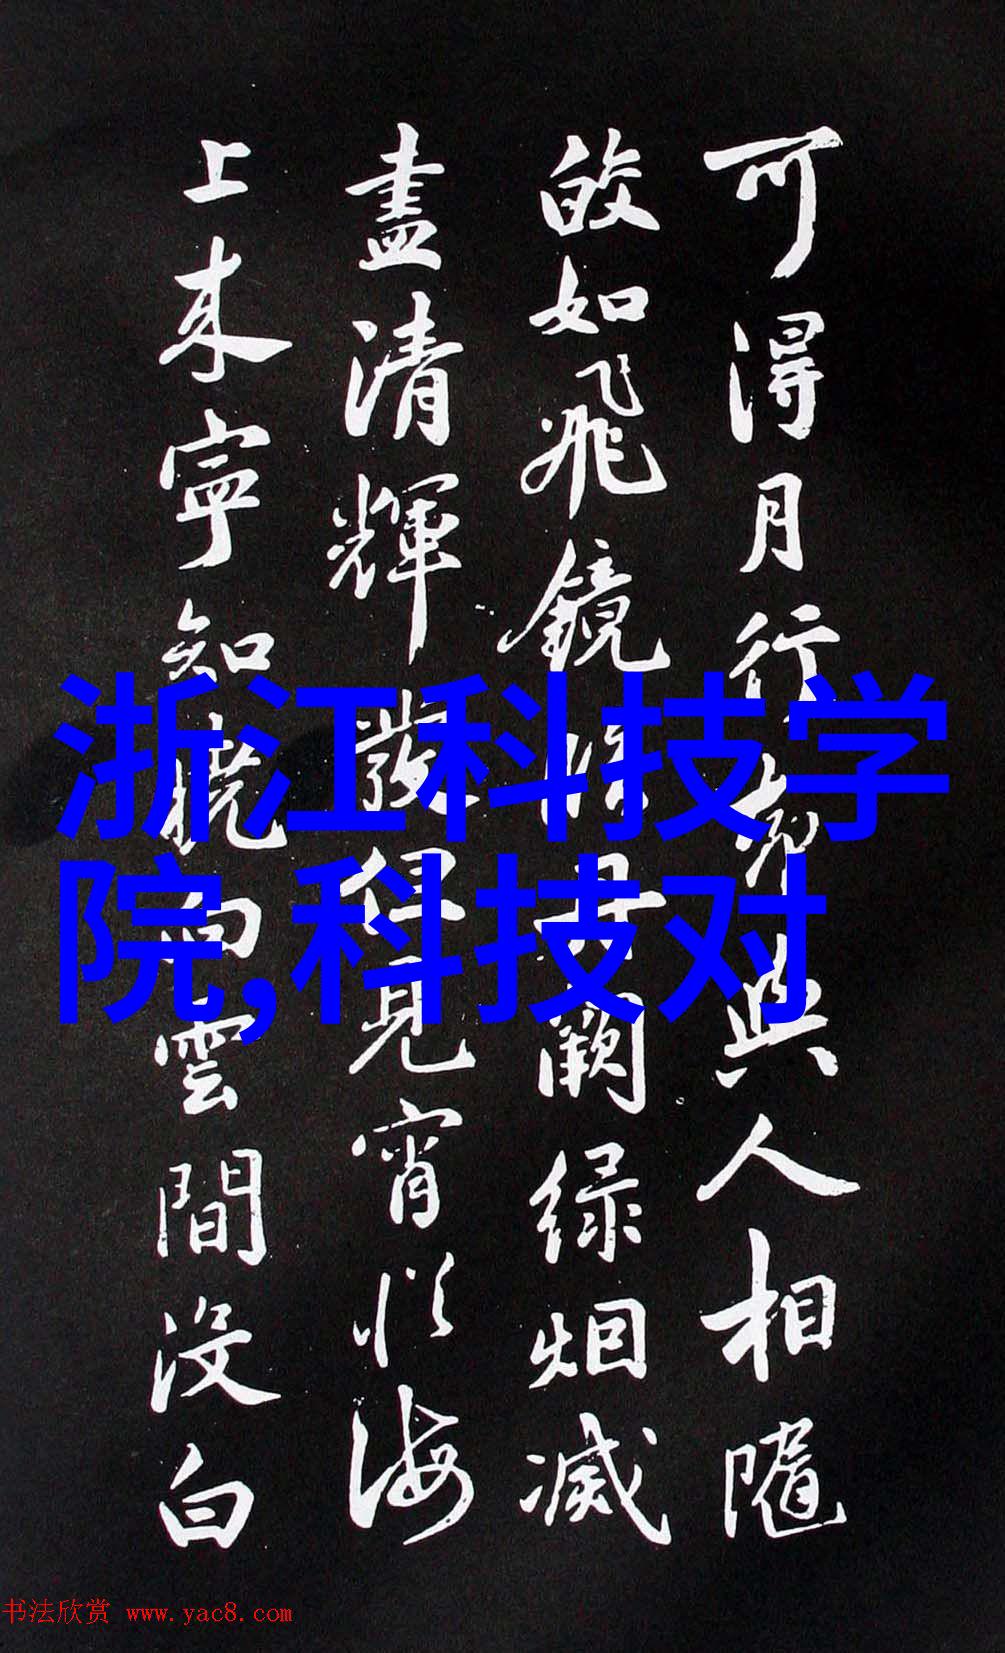 可得月行却與人相隨
皎如飛鏡臨丹闕绿烟滅
盡清輝發但見宵從海
上来寧知曉向雲間没白
浙江科技学
院,科技对
书法欣赏 www.yac8.com